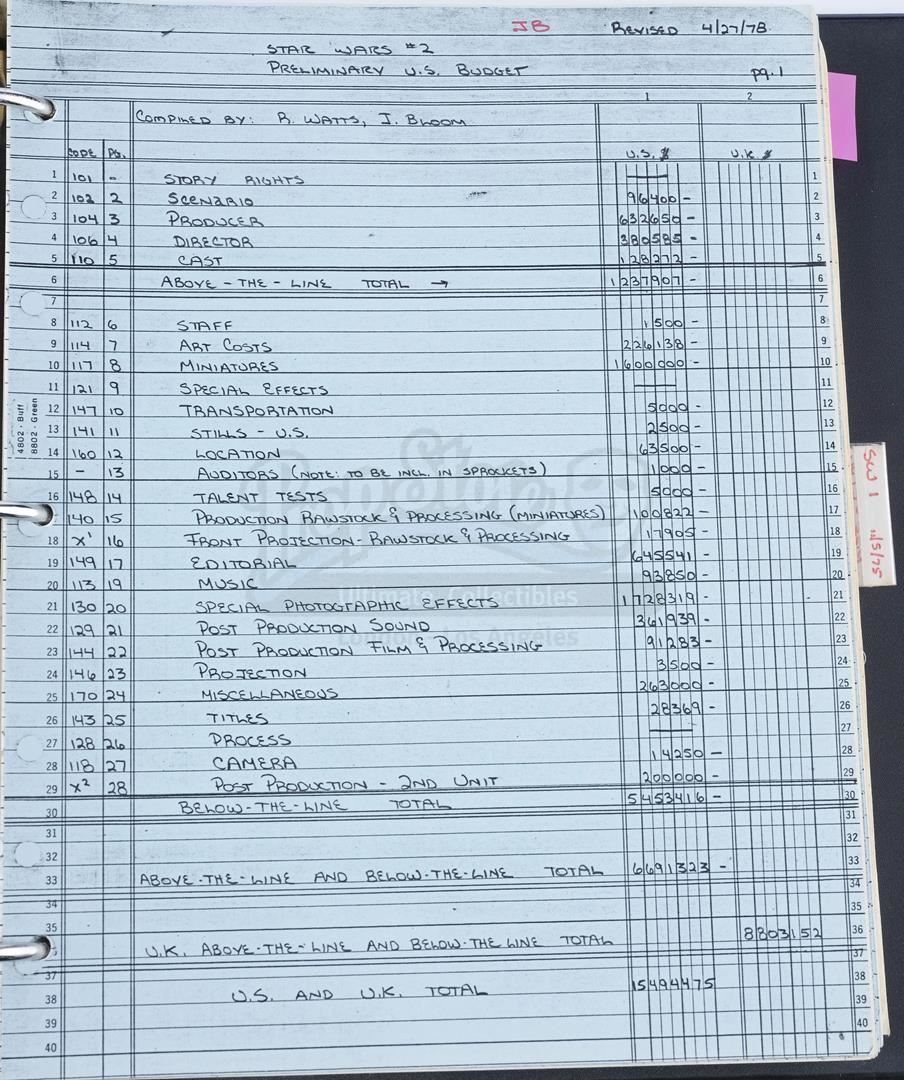 JB Revised 4/27/78
STAR WARS #2
PRELIMINARY U.S. BUDGET pg. 1
1 2
COMPILED BY: R. WATTS, J. BLOOM
CODE PG. U.S. $ U.K. $
1 101 - STORY RIGHTS — 1
2 102 2 SCENARIO 96400 - 2
3 104 3 PRODUCER 632650 - 3
4 106 4 DIRECTOR 380585 - 4
5 110 5 CAST 128272 - 5
6 ABOVE-THE-LINE TOTAL → 1237907 - 6
7 7
8 112 6 STAFF 1500 - 8
9 114 7 ART COSTS 226138 - 9
10 117 8 MINIATURES 1600000 - 10
11 121 9 SPECIAL EFFECTS — 11
12 147 10 TRANSPORTATION 5000 - 12
13 141 11 STILLS - U.S. 2500 - 13
14 160 12 LOCATION 63500 - 14
15 - 13 AUDITORS (NOTE: TO BE INCL. IN SPROCKETS) 1000 - 15
16 148 14 TALENT TESTS 5000 - 16
140 15 PRODUCTION RAWSTOCK & PROCESSING (MINIATURES) 100822 - 17
18 X¹ 16 FRONT PROJECTION - RAWSTOCK & PROCESSING 17905 - 18
19 149 17 EDITORIAL 645541 - 19
20 113 19 MUSIC 93850 - 20
21 130 20 SPECIAL PHOTOGRAPHIC EFFECTS 1728319 - 21
22 129 21 POST PRODUCTION SOUND 361939 - 22
23 144 22 POST PRODUCTION FILM & PROCESSING 91283 - 23
24 146 23 PROJECTION 3500 - 24
25 170 24 MISCELLANEOUS 263000 - 25
26 143 25 TITLES 28369 - 26
27 128 26 PROCESS — 27
28 118 27 CAMERA 14250 - 28
29 X² 28 POST PRODUCTION - 2ND UNIT 200000 - 29
30 BELOW-THE-LINE TOTAL 5453416 - 30
31 31
32 32
33 ABOVE-THE-LINE AND BELOW-THE-LINE TOTAL 6691323 - 33
34 34
35 35
U.K. ABOVE-THE-LINE AND BELOW-THE LINE TOTAL 8803152 36
37 37
38 U.S. AND U.K. TOTAL 15494475 38
39 39
40 40
4802 - Buff
8802 - Green
SW 1 11/5/75
Propstore
Ultimate Collectibles
London - Los Angeles